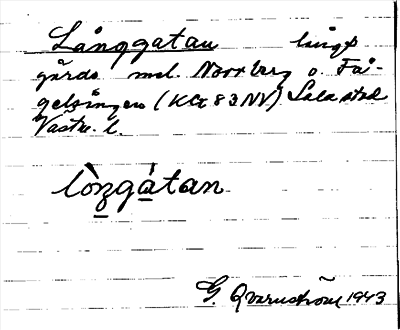 Långgatan längs
gärde mel. Norrberg o. Få-
gelsången (KG 83NV) Sala stad
Västm. l.
lòŋgátan
G. Qvarnström 1943